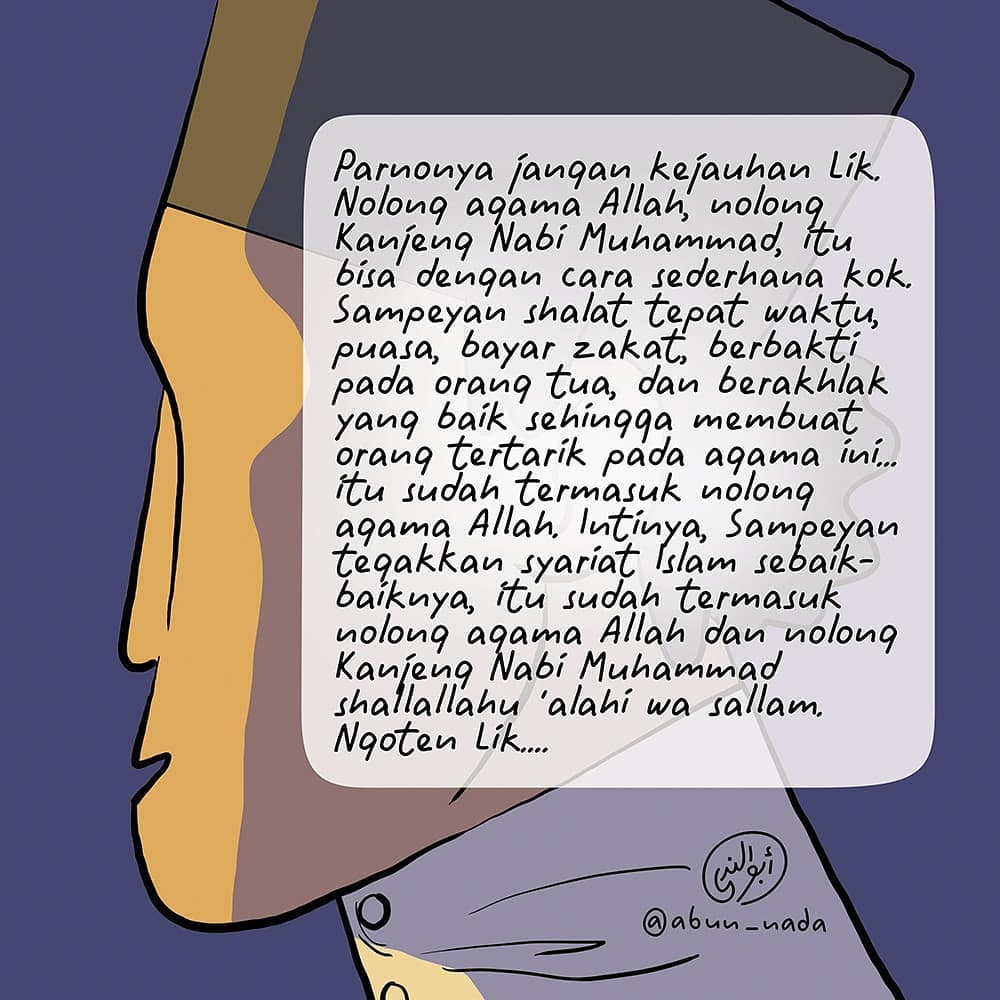 Parnonya jangan kejauhan Lik.
Nolong agama Allah, nolong
Kanjeng Nabi Muhammad, itu
bisa dengan cara sederhana kok.
Sampeyan shalat tepat waktu,
puasa, bayar zakat, berbakti
pada orang tua, dan berakhlak
yang baik sehingga membuat
orang tertarik pada agama ini...
itu sudah termasuk nolong
agama Allah. Intinya, Sampeyan
tegakkan syariat Islam sebaik-
baiknya, itu sudah termasuk
nolong agama Allah dan nolong
Kanjeng Nabi Muhammad
shallallahu 'alahi wa sallam.
Ngoten Lik....
أبو الندى
@abun_nada